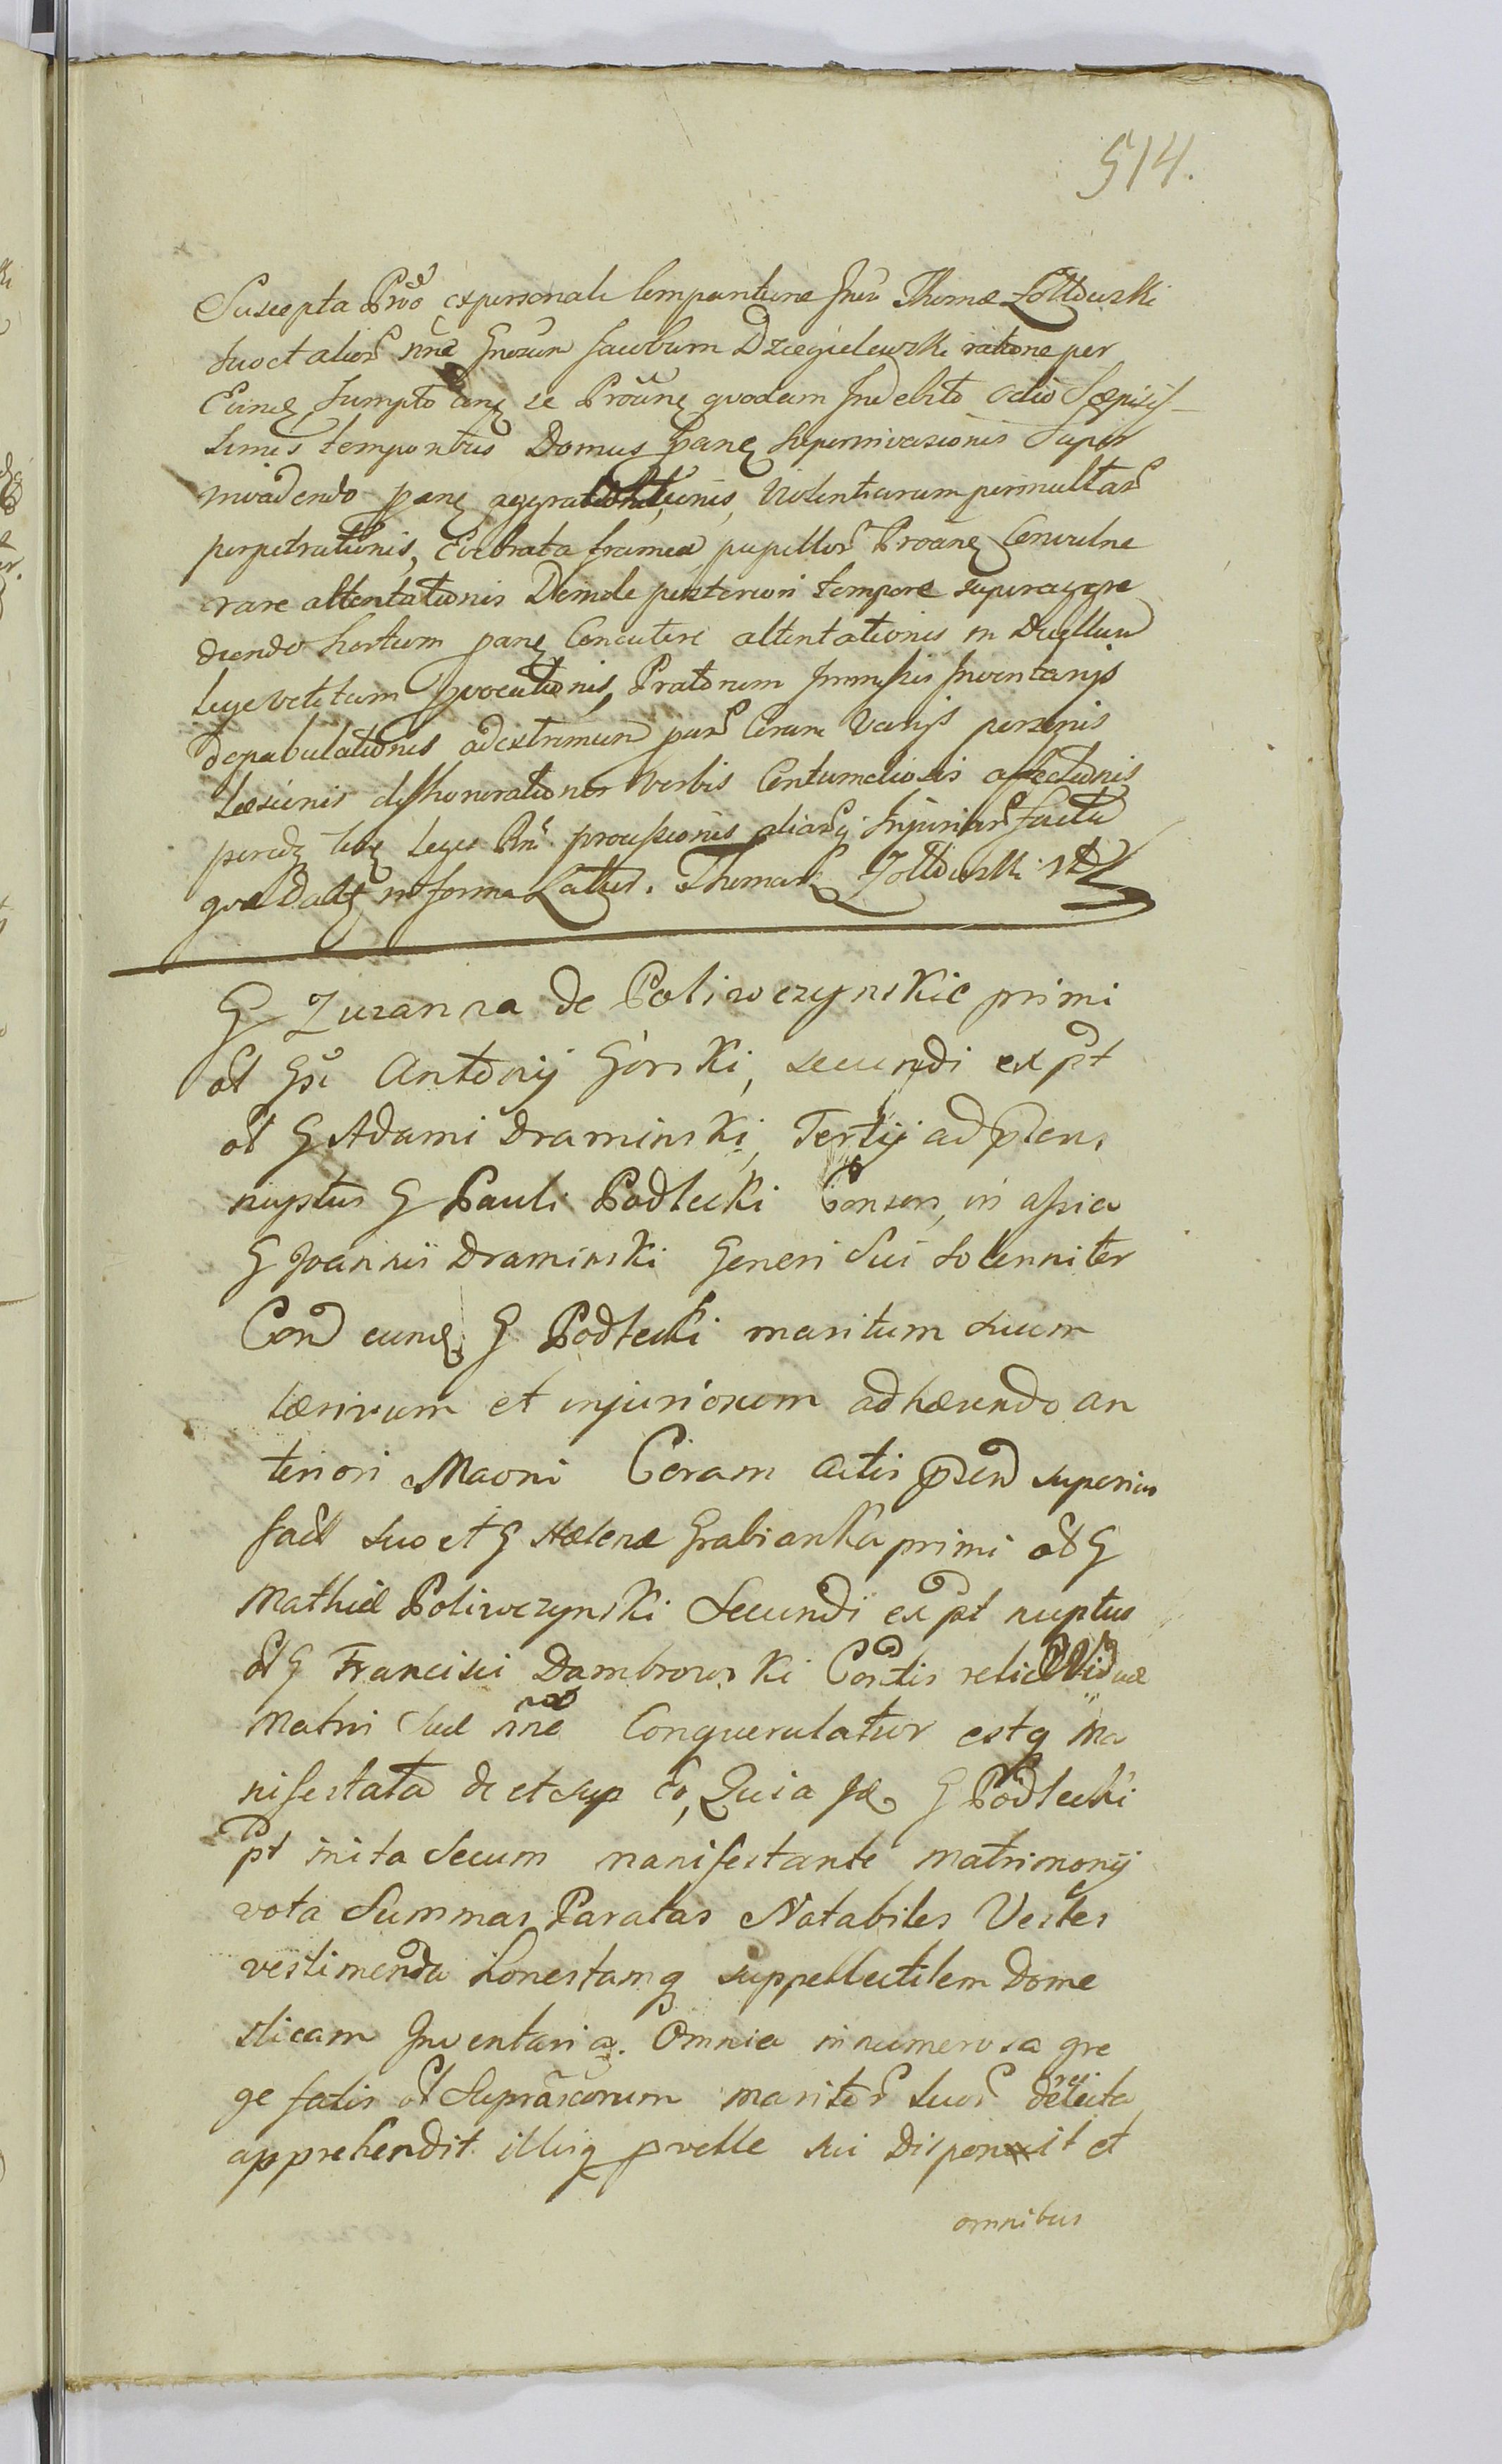 514.
Suscepta Prõo ex personali Comparitione Gnsi Thomæ Żołtowski
suo et alior nne Gnosum Jacobum Dziegielewski ratione per
Eund Sumpto ang se Proñne quodam Indebito odio Sæpiss-
simis temporibus Domus pane superinvasionis Super
invadendo pane aggrationis, Violentiarum permultar
perpetrationis, Evibrata framea pupillor Proãne Convulne
rare attentationis Deinde posteriori tempore superaggre
diendo hortum pane Concutere attentationis in Duellum
lege vetitum provocationis, Pratorum Immissis Inventarijs
depabulationis ad extremum par Coram Varijs personis
Læsionis dishonorationis Verbis Contumeliosis affectionis
pœnar leg Leges Rni processionis aliarq Injuriar factu
quæ Dat in forma Lattus. Thomas Żołtowski
G Zuzanna de Poliwczynskie primi
ol Gsi Antonij Górski, secundi ex pt
ol G Adami Draminski, Tertij ad præns
nuptus G Pauli Podlecki Consors, in assia
G Joannis Draminski Generi Sui Solenniter
Con eund G Podlecki maritum suum
læsivum et injuriosum adhærendo an
teriori Maoni Coram actis præn superius
fact suo et G Helenæ Grabianka primi ol G
Mathiæ Poliwczynski Secundi ex pt nuptus
ol G Francisci Dambrowski Contis relict Viduæ
Matris Suæ nne Conquerulatur estq Ma
nifestata de et sup eo, Quia Id G Podlecki
pt inita secum manifestante matrimonij
vota Summas Paratas Notabiles Vestes
vestimenda honestamq suppellectilem Dome
sticam Inventaria Omnia in numerosa gre
ge satis ol Supräscorum maritor suor relicta
apprehendit illisq pvelle sui Disponit et
omnibus